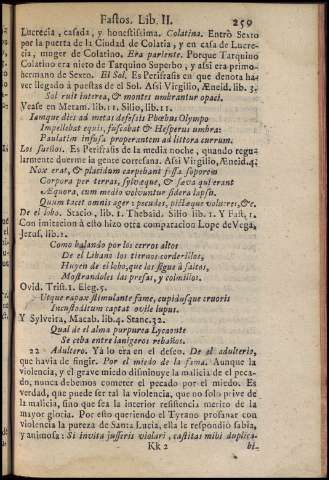 Fastos. Lib. II. 259
Lucrecia, casada, y honestissima. Colatina. Entrò Sexto
por la puerta de la Ciudad de Colatia, y en casa de Lucre-
cia, muger de Colatino. Era pariente. Porque Tarquino
Colatino era nieto de Tarquino Superbo, y assi era primo-
hermano de Sexto. El Sol. Es Perifrasis en que denota ha-
ver llegado à puestas de el Sol. Assi Virgilio, Æneid. lib. 3.
Sol ruit interea, & montes umbrantur opaci.
Vease en Metam. lib. 11. Silio, lib. 11.
Iamque dies ad metas defessis Phœbus Olympo
Impellebat equis, fuscabat & Hesperus umbra:
Paulatim infusa properantem ad littora currum.
Los sueños. Es Perifrasis de la media noche, quando regu-
larmente duerme la gente cortesana. Assi Virgilio, Æneid. 4.
Nox erat, & placidum carpebant fessa soporem
Corpora per terras, sylvæque, & sæva quierant
Æquora, cum medio volvuntur sidera lapsu.
Quum tacet omnis ager: pecudes, pictæque volucres, &c.
De el lobo. Stacio, lib. 1. Thebaid. Silio lib. 1. Y Fast. 1.
Con imitacion à esto hizo otra comparacion Lope de Vega,
Jerus. lib. 1.
Como balando por los cerros altos
De el Libano los tiernos corderillos,
Huyen de el lobo, que los sigue à saltos,
Mostrandoles las presas, y colmillos.
Ovid. Trist. 1. Eleg. 5.
Utque rapax stimulante fame, cupidusque cruoris
Incustoditum captat ovile lupus.
Y Sylveira, Macab. lib. 4. Stanc. 32.
Qual de el alma purpurea Lycaonte
Se ceba entre lanigeros rebaños.
22 Adultero. Yà lo era en el deseo. De al adulterio,
que havia de fingir. Por el miedo de la fama. Aunque la
violencia, y el grave miedo disminuye la malicia de el peca-
do, nunca debemos cometer el pecado por el miedo. Es
verdad, que puede ser tal la violencia, que no solo prive de
la malicia, sino que sea la interior resistencia merito de la
mayor gloria. Por esto queriendo el Tyrano profanar con
violencia la pureza de Santa Lucia, ella le respondiò sabia,
y animosa: Si invita jusseris violari, castitas mihi duplica-
Kk 2 bi-